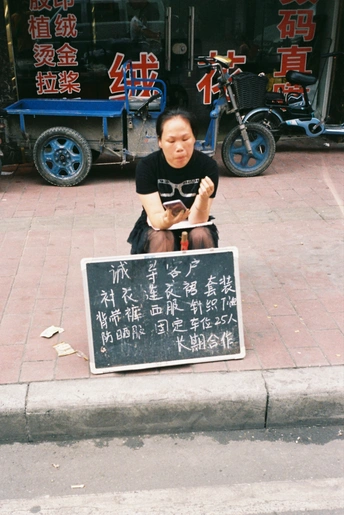 印
植绒
烫金
拉浆
绒
花
数码直
诚寻客户
衬衣 连衣裙 套装
背带裤 西服 针织 T恤
防晒服 固定车位25人
长期合作